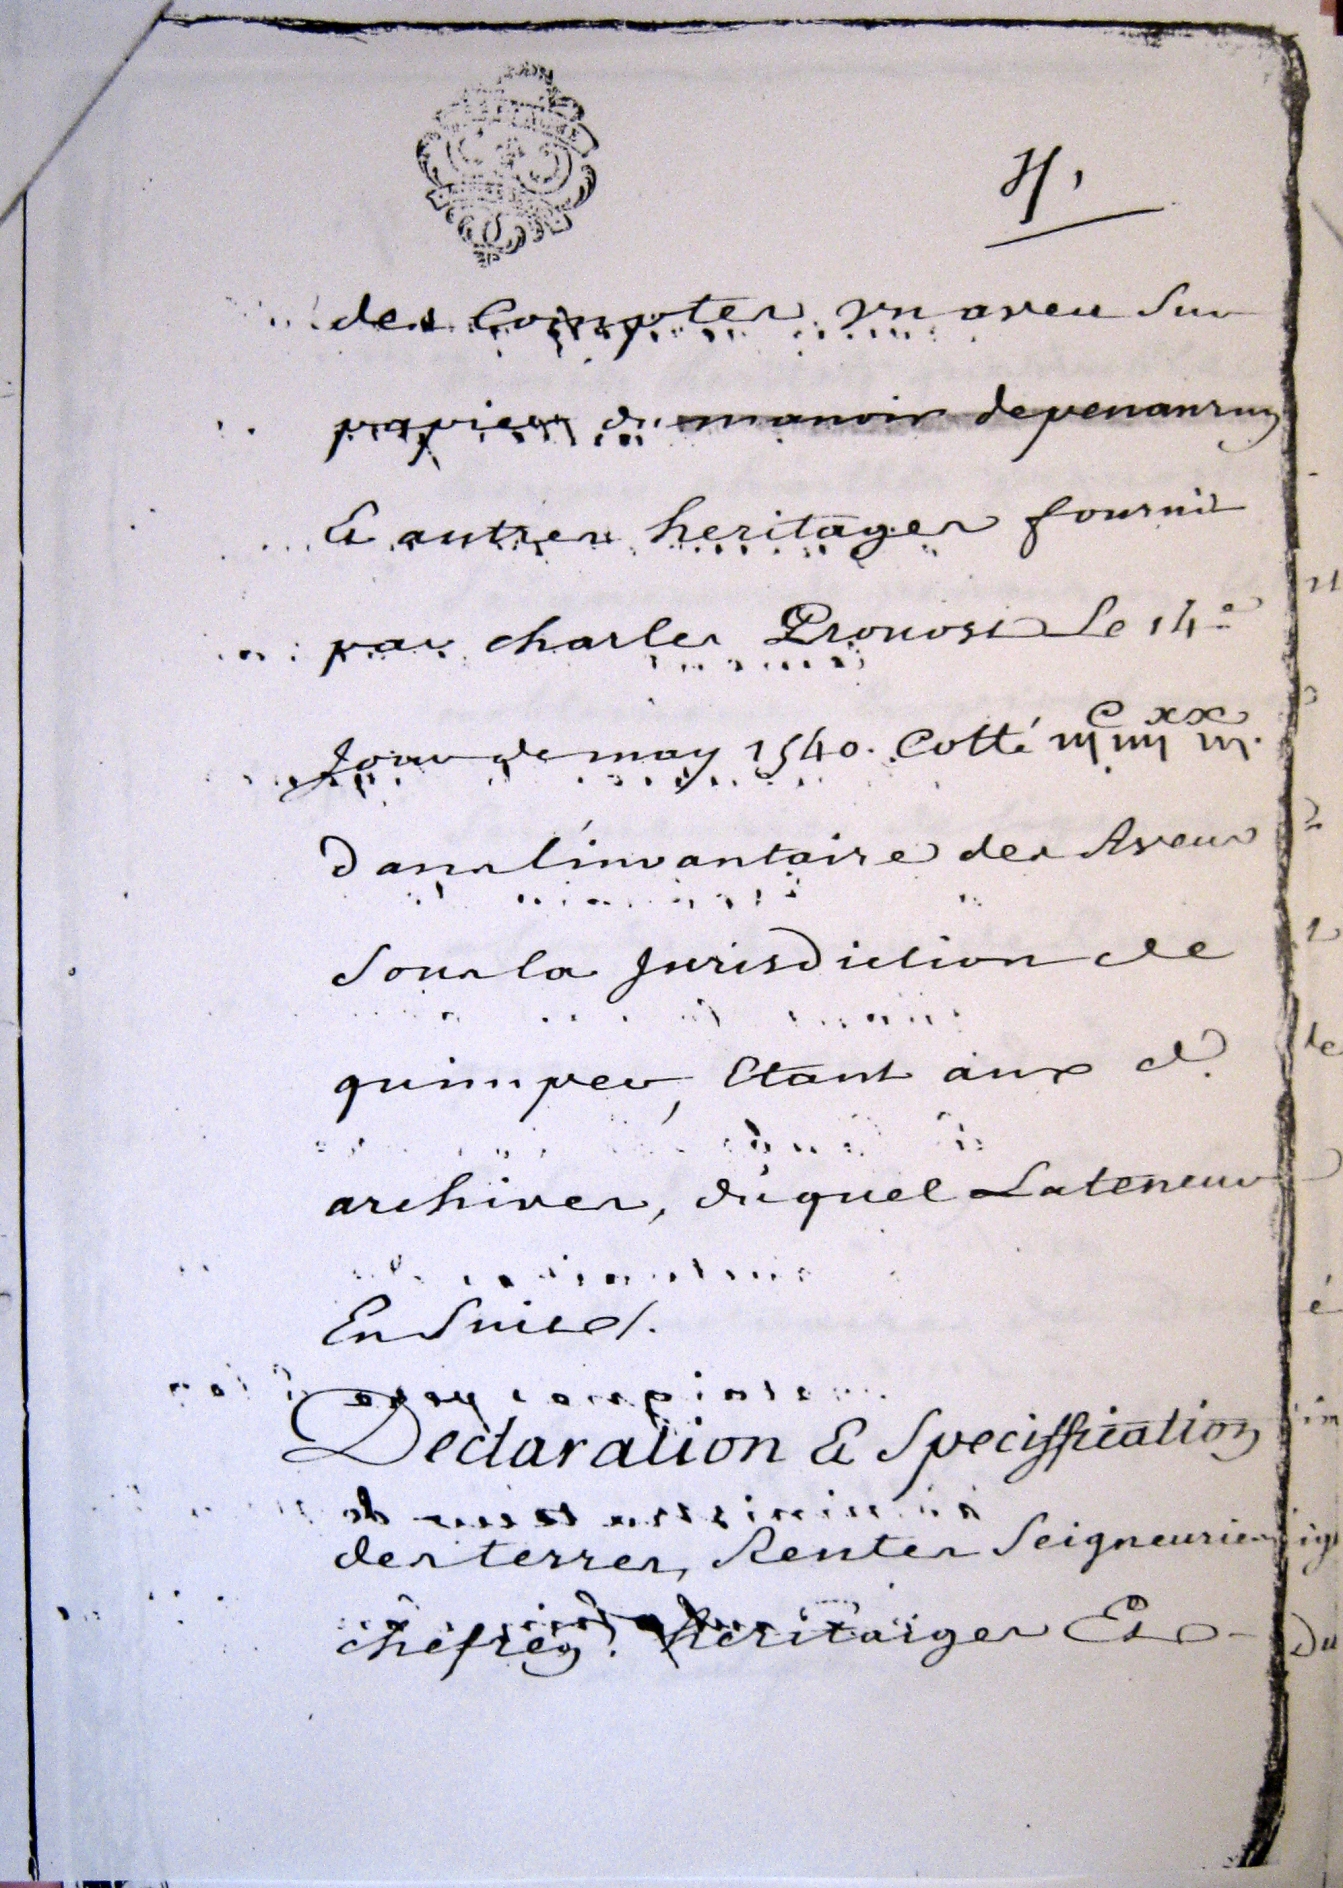 4.
des Comptes, un aveu sur
papier du manoir de penanrun
& autres heritages fournit
par charles Provost le 14e
Jour de may 1540. Cotté iij c iiij xx iij.
dans l'invantaire des Aveus
sous la Jurisdiction de
quimper, Etant aux d.
archives, duquel La teneur
En suiet.
Declaration & Speciffication
des terres, Rentes Seigneuries
heritaiges Et